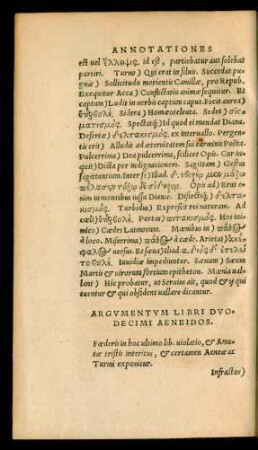 ANNOTATIONES
est uel ἔλλειψις. id est, partiebatur aut solebat
partiri. Turno) Qui erat in siluis. Succedat pu
gnæ) Sollicitudo morientis Camillæ, pro Repub.
Exequitur Acca) Conflictatio animæ sequitur. Et
captum) Ludit in uerbis captum caput. Fecit aurea)
Scelera) Homœoteleuta. Sedet)
Spectatq;) Id quod ei mandat Diana.
Deserta) ex interuallo. Pergen
tis erit) Alludit ad
Pulcerrima) Dea pulcerrima, scilicet Opis. Cur in
quit) Dicta per indignationem. Sagittam) Gestus
sagittantium. Inter se) Iliad.
Opis ad) Erat e
nim in montibus iussu Dianæ.
Turbidus) Expressa rei naturam. Ad
Portas) Hot ini
mico) Cædes Latinorum. Mœnibus in)
à loco. Miserrima) à cæde. Arietat)
uersus. Et sæua) Iliad.
Inuidiæ impediuntur. Sæuum) Sæuus
Martis & uirorum fortium epitheton. Mœnia ual
lant) Hic probatur, ut Seruius ait, quod & ij qui
tuentur & qui obsident uallare dicantur.
ARGVMENTVM LIBRI DVO-
DECIMI AENEIDOS.
Fœderis in hoc ultimo lib. uiolatio, & Ama
tæ tristis interitus, & certamen Aeneæ ac
Turni exponitur.
Infractos)